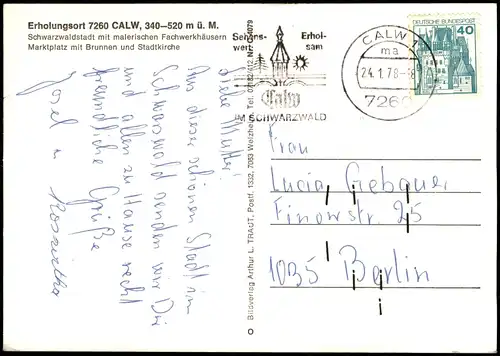 Erholungsort 7260 CALW, 340–520 m ü. M.
Schwarzwaldstadt mit malerischen Fachwerkhäusern
Marktplatz mit Brunnen und Stadtkirche
Liebe Mutter!
Aus dieser schönen Stadt im
Schwarzwald senden wir Dir
und allen zu Hause recht
freundliche Grüße
Josef u. Roswitha
Bildverlag Arthur L. TRAUT, Postf. 1332, 7063 Welzheim
Sehens-
wert
Erhol-
sam
Calw
IM SCHWARZWALD
CALW 1
ma
24.1.78-
7260
DEUTSCHE BUNDESPOST
40
Frau
Lucia Gebauer
Finowstr. 25
1035 Berlin